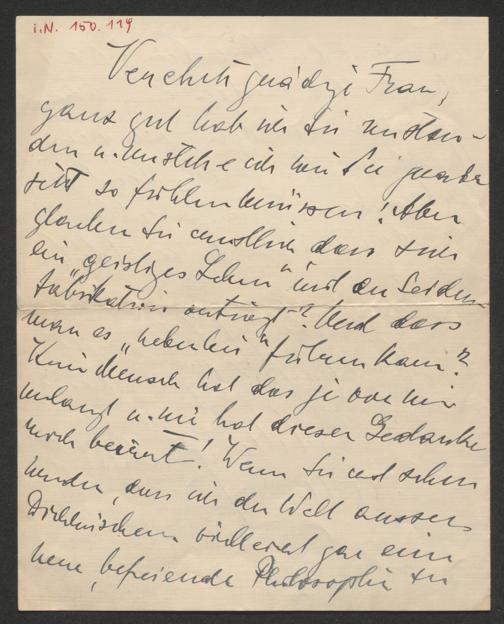 I.N. 150.119
Verehrte gnädige Frau,
ganz gut hab ich Sie verstan-
den u. verstehe ich wie Sie gerade
jetzt so fühlen müssen! Aber
glauben Sie ernstlich dass sich
ein "geistiges Leben" mit der Seiden-
fabrikation verträgt? Und dass
man es "nebenbei" führen kann?
Kein Mensch hat das je von mir
verlangt u. nie hat dieser Gedanke
mich berührt! Wenn Sie erst sehen
werden, dass ich der Welt ausser
Dichterischem vielleicht gar eine
neue, befreiende Philosophie zu